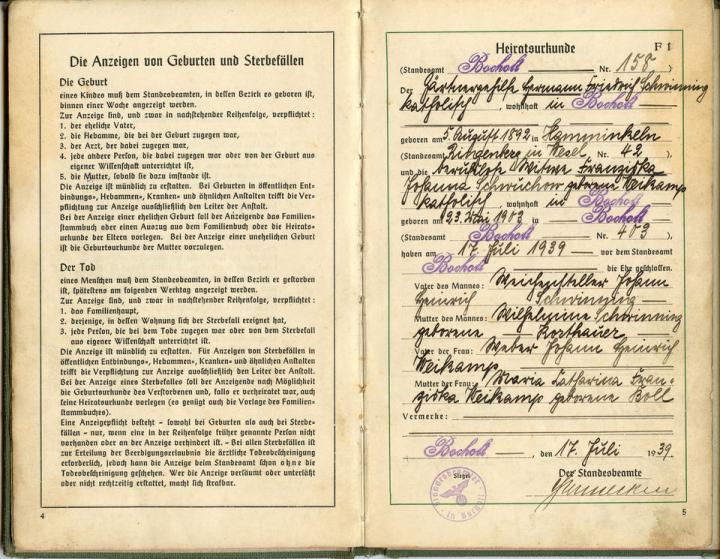 Die Anzeigen von Geburten und Sterbefällen
Die Geburt
eines Kindes muß dem Standesbeamten, in dessen Bezirk es geboren ist,
binnen einer Woche angezeigt werden.
Zur Anzeige sind, und zwar in nachstehender Reihenfolge, verpflichtet:
1. der eheliche Vater,
2. die Hebamme, die bei der Geburt zugegen war,
3. der Arzt, der dabei zugegen war,
4. jede andere Person, die dabei zugegen war oder von der Geburt aus
eigener Wissenschaft unterrichtet ist,
5. die Mutter, sobald sie dazu imstande ist.
Die Anzeige ist mündlich zu erstatten. Bei Geburten in öffentlichen Ent-
bindungs-, Hebammen-, Kranken- und ähnlichen Anstalten trifft die Ver-
pflichtung zur Anzeige ausschließlich den Leiter der Anstalt.
Bei der Anzeige einer ehelichen Geburt soll der Anzeigende das Familien-
stammbuch oder einen Auszug aus dem Familienbuch oder die Heirats-
urkunde der Eltern vorlegen. Bei der Anzeige einer unehelichen Geburt
ist die Geburtsurkunde der Mutter vorzulegen.
Der Tod
eines Menschen muß dem Standesbeamten, in dessen Bezirk er gestorben
ist, spätestens am folgenden Werktag angezeigt werden.
Zur Anzeige sind, und zwar in nachstehender Reihenfolge, verpflichtet:
1. das Familienhaupt,
2. derjenige, in dessen Wohnung sich der Sterbefall ereignet hat,
3. jede Person, die bei dem Tode zugegen war oder von dem Sterbefall
aus eigener Wissenschaft unterrichtet ist.
Die Anzeige ist mündlich zu erstatten. Für Anzeigen von Sterbefällen in
öffentlichen Entbindungs-, Hebammen-, Kranken- und ähnlichen Anstalten
trifft die Verpflichtung zur Anzeige ausschließlich den Leiter der Anstalt.
Bei der Anzeige eines Sterbefalles soll der Anzeigende nach Möglichkeit
die Geburtsurkunde des Verstorbenen und, falls er verheiratet war, auch
seine Heiratsurkunde vorlegen (es genügt auch die Vorlage des Familien-
stammbuches).
Eine Anzeigepflicht besteht - sowohl bei Geburten als auch bei Sterbe-
fällen - nur, wenn eine in der Reihenfolge früher genannte Person nicht
vorhanden oder an der Anzeige verhindert ist. - Bei allen Sterbefällen ist
zur Erteilung der Beerdigungserlaubnis die ärztliche Todesbescheinigung
erforderlich, jedoch kann die Anzeige beim Standesamt schon ohne die
Todesbescheinigung geschehen. Wer die Anzeige versäumt oder unterläßt
oder nicht rechtzeitig erstattet, macht sich strafbar.
4
Heiratsurkunde F 1
(Standesamt Bocholt Nr. 158)
Der Gärtnergehilfe Hermann Friedrich Schwinning
katholisch, wohnhaft in Bocholt
geboren am 5. August 1892 in Hamminkeln
(Standesamt Ringenberg in Wesel Nr. 42)
und die Witwe Franziska
Johanna geborene Weikamp
katholisch, wohnhaft in Bocholt
geboren am 23. Mai 1903 in Bocholt
(Standesamt Bocholt Nr. 403)
haben am 17. Juli 1939 vor dem Standesamt
Bocholt die Ehe geschlossen.
Vater des Mannes: Weichensteller Johann
Heinrich Schwinning
Mutter des Mannes: Wilhelmine Schwinning
geborene Korthauer
Vater der Frau: Weber Johann Heinrich
Weikamp
Mutter der Frau: Maria Catharina Fran-
ziska Weikamp geborene Boll
Vermerke:
Bocholt, den 17. Juli 1939.
Siegel
Der Standesbeamte
5